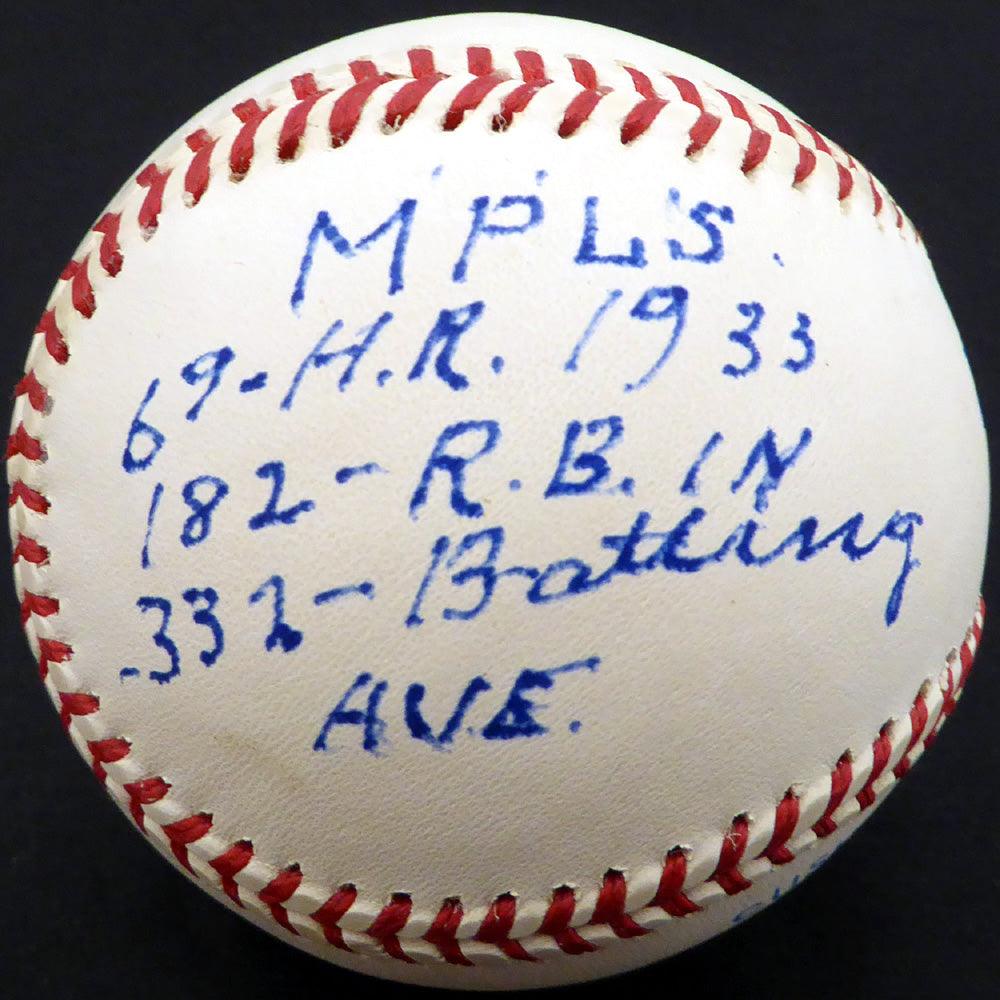 MPLS.
69-H.R. 1933
182-R.B. IN
.332-Batting
AVE.